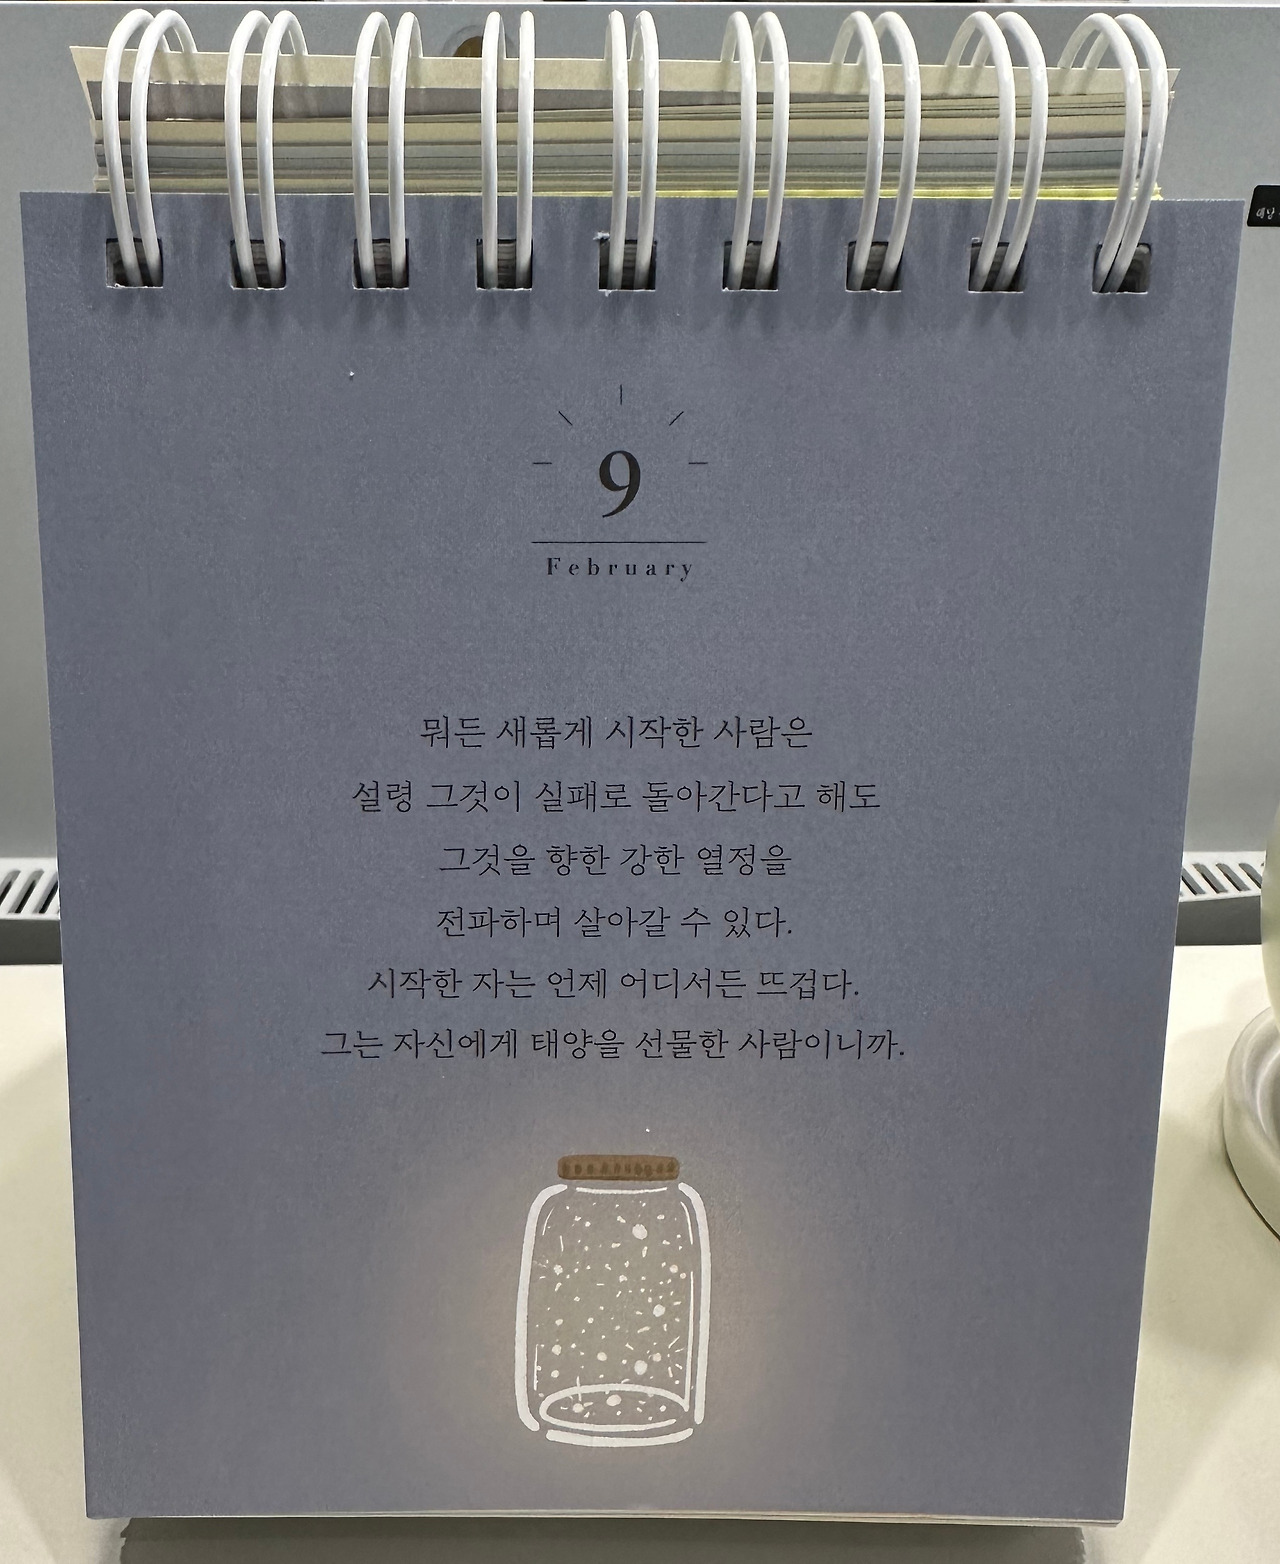 9
February
뭐든 새롭게 시작한 사람은
설령 그것이 실패로 돌아간다고 해도
그것을 향한 강한 열정을
전파하며 살아갈 수 있다.
시작한 자는 언제 어디서든 뜨겁다.
그는 자신에게 태양을 선물한 사람이니까.